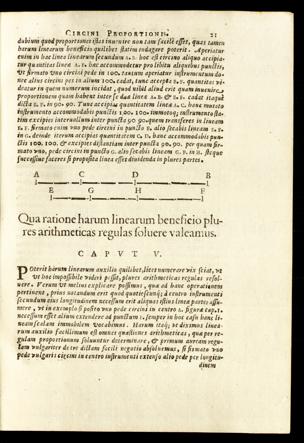 CIRCINI PROPORTIONIS. 21
dubium quod proportiones istas inuenire non tam facile esset, quas tamen
harum linearum beneficio quilibet statim indagare poterit. Aperiatur
enim in hac linea linearum secundum 1. 2. hoc est circino aliquo accipia-
tur quantitas linea 1. 2. hac accommodetur pro libitu aliquibus punctis,
ut firmato uno circini pede in 100. tantum aperiatur instrumentum do-
nec alius circini pes in alium 100. cadat, tunc accepta
dratur in quem numerum incidat, quod nihil aliud erit quam inuenire
proportionem quam habent inter se duæ lineæ
in 90. 90. Tunc accipias quantitatem lineæ
accommodabis punctis 100. 100. immoto instrumento sta-
tim excipies interuallum inter puncta 90 90. quem transferes in lineam
firmato enim uno pede circini in puncto
in G. deinde iterum accipias quantitatem C. D. hanc accommodabis pun-
ctis 100. 100. & excipies distantiam inter puncta 90. 90. per quam fir-
mato uno pede circini in puncto G. alio secabis lineam
successiue facies si proposita linea esset diuidenda in plures partes.
A C D B
E G H F
Qua ratione harum linearum beneficio plu-
res arithmeticas regulas soluere valeamus.
CAPVT V.
Poterit harum linearum auxilio quilibet, licet numerare vix sciat, &
vt hoc impossibile videri possit, plures arithmeticas regulas resol-
uere. Verum vt melius explicare possimus, quæ ad hanc operationem
pertinent, prius notandum erit quod quotiescunque à centro instrumenti
secundum eius longitudinem necessum erit aliquos istius lineæ partes assu-
mere, vt in exemplo si posito vno pede circini in centro
necessum esset alium extendere ad punctum
neam scalam immobilem vocabimus. Harum itaque vt diximus linea-
rum auxilio facillimum est omnes quæstiones arithmeticas, quæ per re-
gulam proportionum soluuntur determinare, & primum auream regu-
lam vulgariter de tre dictam facili negotio absoluemus, si firmato vno
pede vulgaris circini in centro instrumenti extenso alio pede per longitu-
dinem